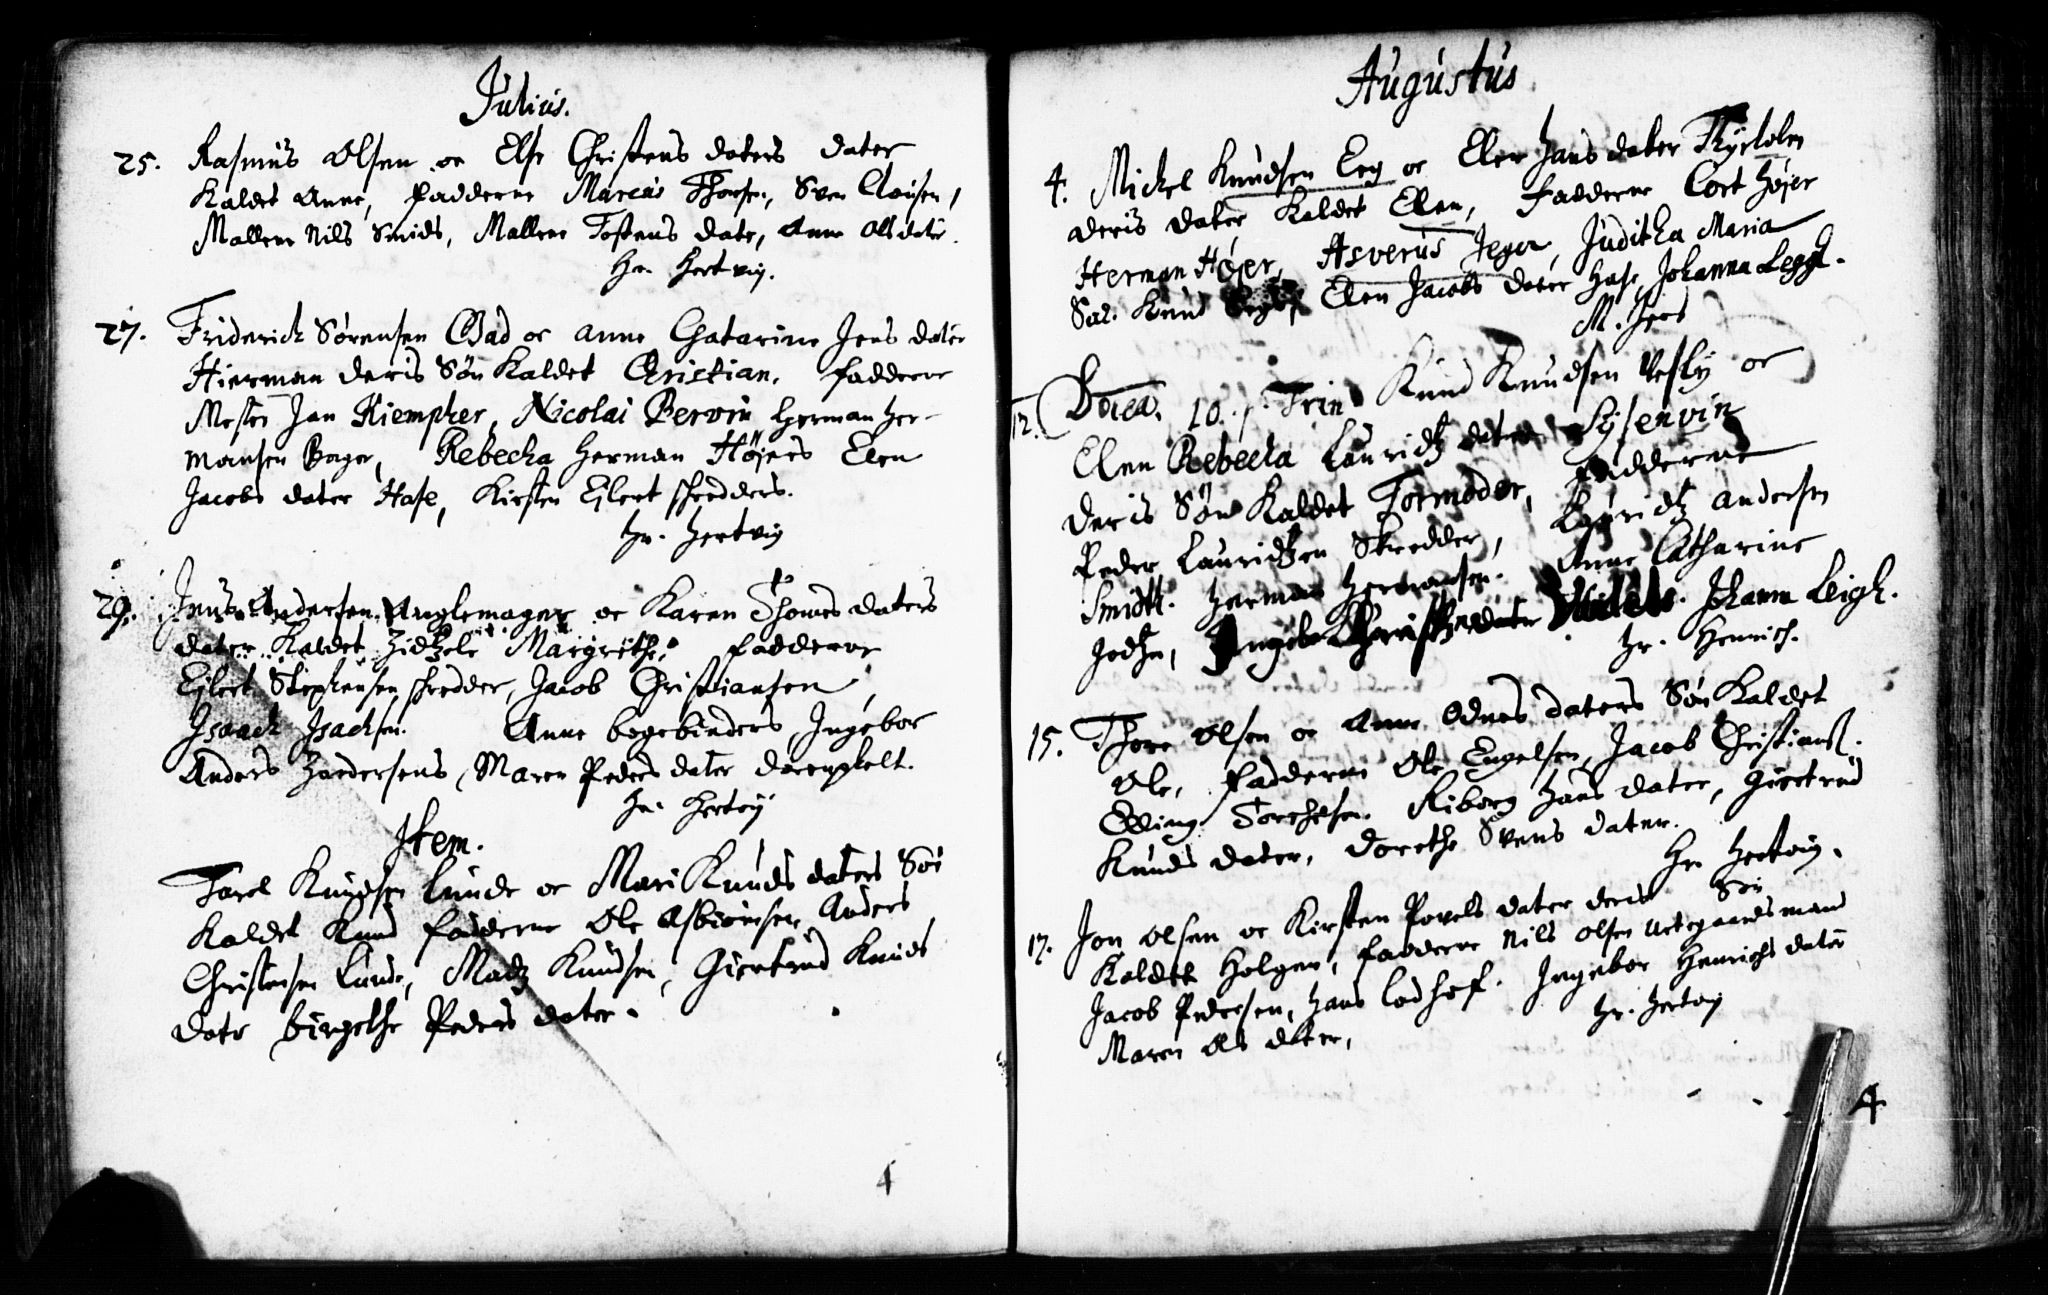 Julius.
25. Rasmus Olsen oc Else Christens daters dater
Kaldet Anne, fadderne Marcus Thorsen, Sven Clausen,
Mallene Nils Smids, Mallene Tostens dater, Anne Ols dater.
Hr. Hertvig.
27. Friderich Sørensen Bad oc Anne Chatarine Jens dater
Hierman deris Søn Kaldet Christian. fadderne
Mester Jan Kiempher, Nicolai Bervin Herman Her-
mansen Bager, Rebecha Herman Højers Elen
Jacobs dater Hase, Kirsten Ejlert schredders.
Hr. Hertvig
29. Jens Andersen Nagelmager oc Karen Thomes daters
dater Kaldet Zidtzele Margrethe, fadderne
Ejlert Stephensen schredder, Jacob Christiansen,
Isaach Isachsen. Anne bogebinders, Ingebor
Anders Andersens, Maren Peders dater
Hr. Hertvig
Item.
Tarel Knudsen Lunde oc Mari Knuds daters Søn
Kaldet Knud fadderne Ole Asbiørnsen, Anders
Christensen Lunde, Madtz Knudsen, Giertrud Knuds
dater birgethe Peders dater.
4
Augustus
4. Mickel Knudsen Eeg oc Elen Hans dater
deris dater Kaldet Elen, fadderne Cort Højer
Herman Højer, Asverus Jeger, Juditha Maria
Sal. Knud Elen Jacobs dater Hase, Johanna Legel.
M. Jens
12. Doica. 10. p. Trin Knud Knudsen Vesby oc
Elen Rebecka Lauridtz dater Sysenvin
deris Søn Kaldet Tormoder, fadderne
Peder Lauridtzen Skredder, Lauridtz Andersen
Smidt. Herman Hermansen. Anne Catharine
Ingebor dater Johanna Leigh.
Hr. Henrich.
15. Thore Olsen oc Anne Odnes daters Søn Kaldet
Ole, fadderne Ole Engelsen, Jacob Christians.
Elling Torchelsen Riborg Hans dater, Giertrud
Knuds dater, Dorethe Svens dater.
Hr. Hertvig.
17. Jon Olsen oc Kirsten Povels dater deris Søn
Kaldet Holger, fadderne Nils Olsen Urtegaardsmand
Jacob Pedersen, Hans Lodhof. Ingebor Henrichs dater
Maren Ols dater,
Hr. Hertvig
4